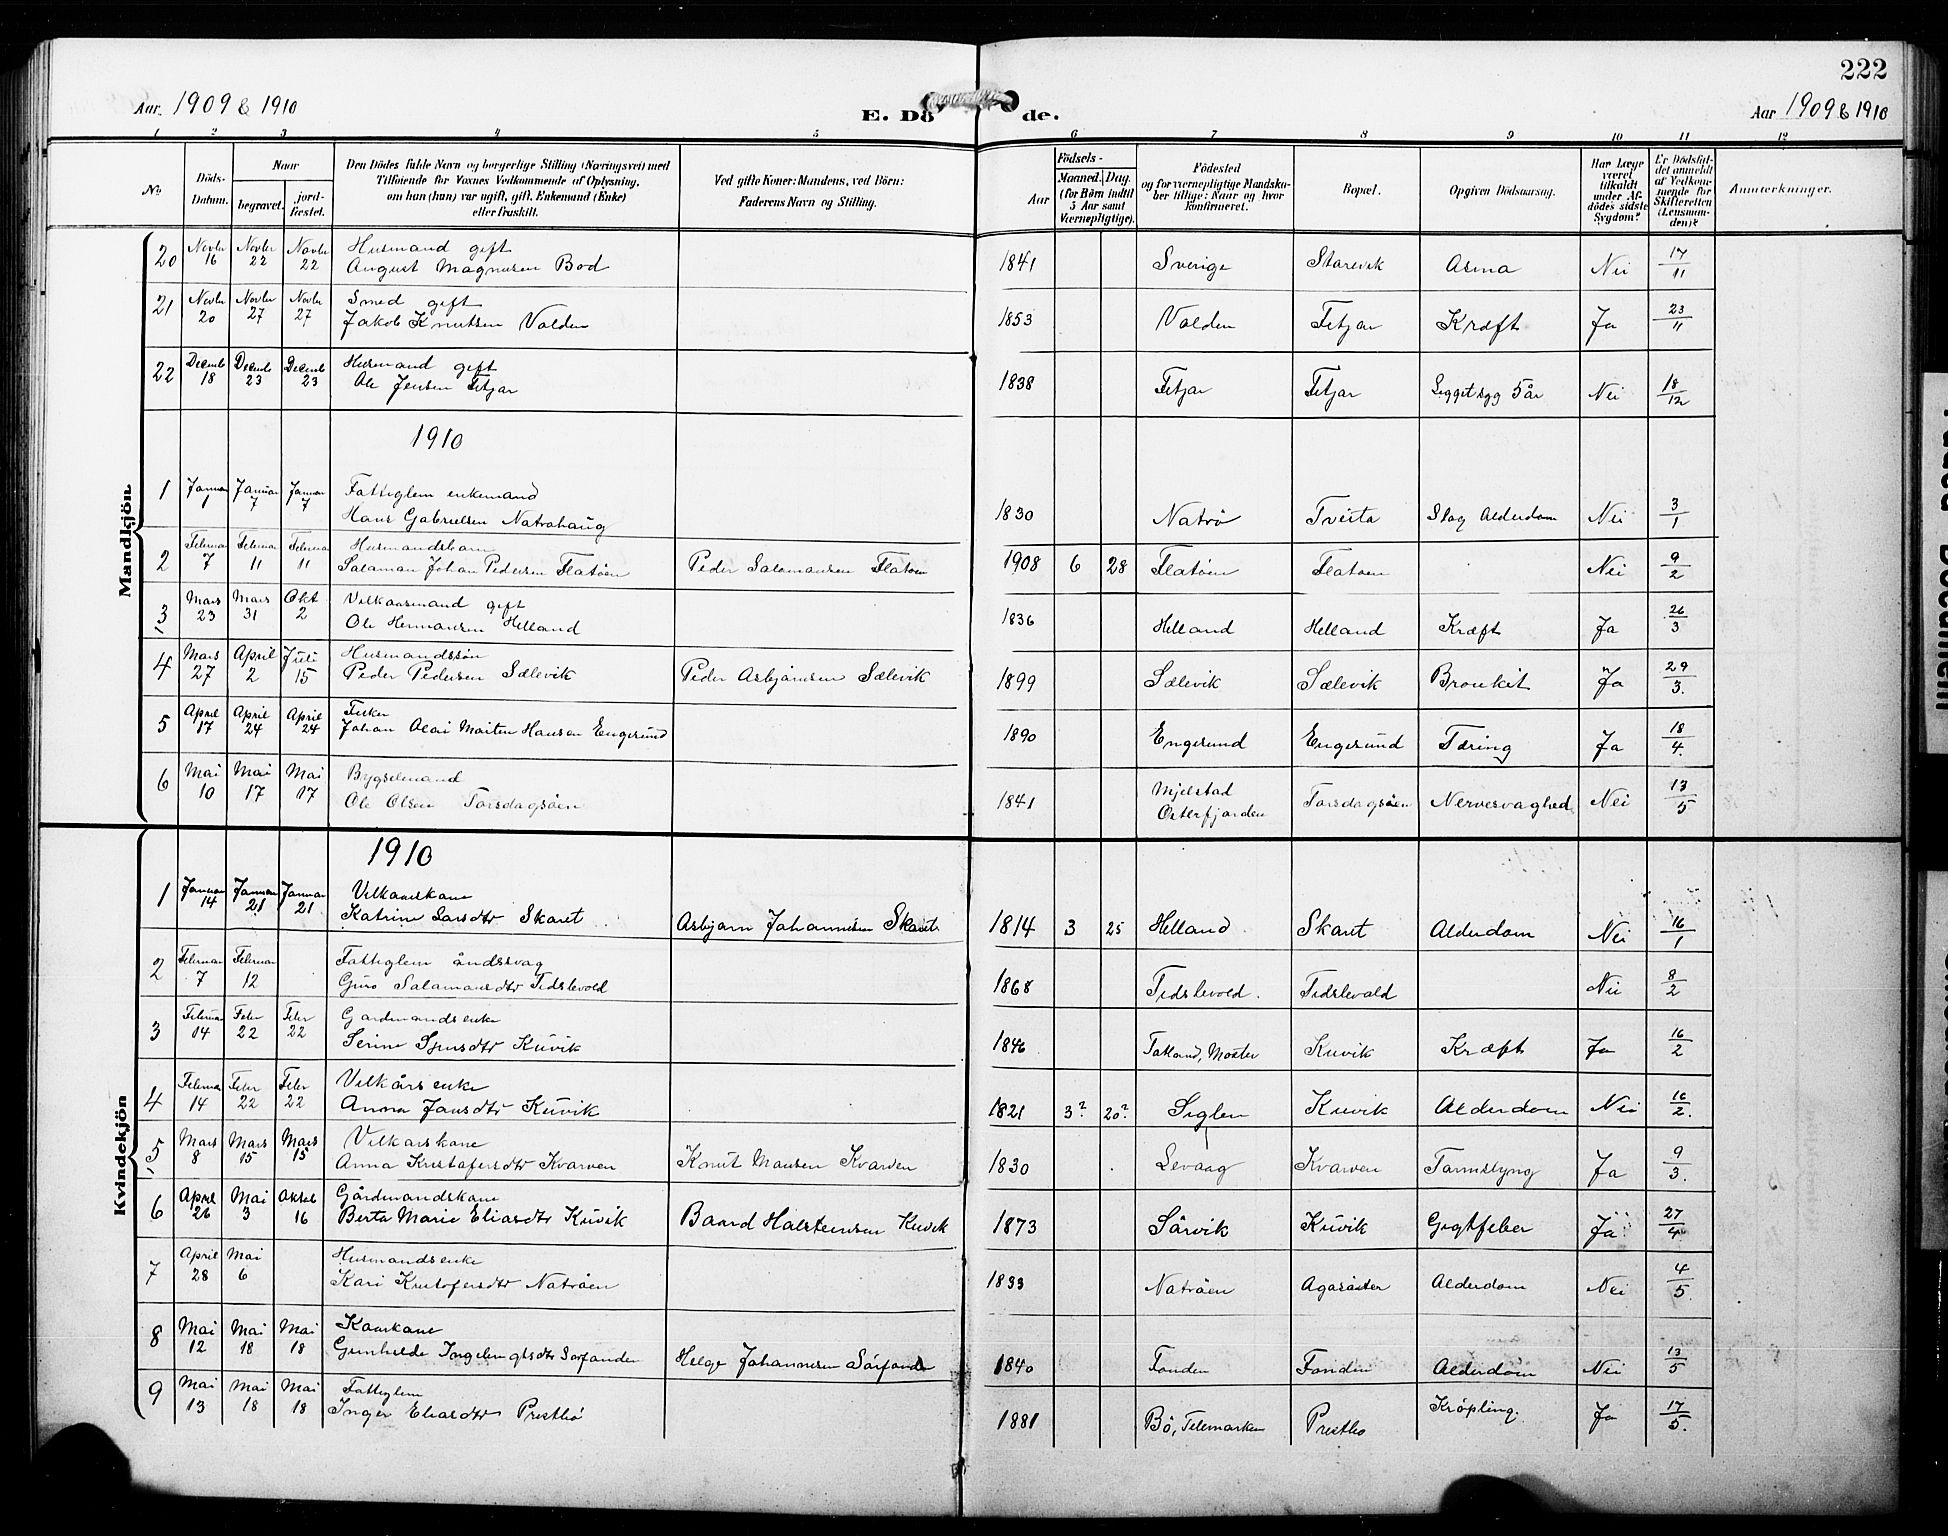 222
Aar. 1909 & 1910
E. Dö de.
Aar 1909 & 1910
1 2 3 4 5 6 7 8 9 10 11 12
No.
Döds-Datum.
Naar
begravet.
jordfæstet.
Den Dödes fulde Navn og borgerlige Stilling (Næringsvei) med
Tilföiende for Voxnes Vedkommende af Oplysning,
om han (hun) var ugift, gift, Enkemand (Enke)
eller fraskilt.
Ved gifte Koner: Mandens, ved Börn:
Faderens Navn og Stilling.
Födsels-
Aar
Maaned. Dag.
(for Börn indtil
5 Aar samt
Værnepligtige).
Födested
og for værnepligtige Mandska-
ber tillige: Naar og hvor
konfirmeret.
Bopæl.
Opgiven Dödsaarsag.
Har Læge
været
tilkaldt
under Af-
dödes sidste
Sygdom?
Er Dödsfal-
det anmeldt
af Vedkom-
mende for
Skifteretten
(Lensman-
den)?
Anmærkninger.
Mandkjön
20 Novbr 16 Novbr 22 Novbr 22 Husmand gift
August Magnusen Bod 1841 Sverige Starevik Asma Nei 17/11
21 Novbr 20 Novbr 27 Novbr 27 Smed gift
Jakob Knutsen Valden 1853 Valden Fitjar Kræft Ja 23/11
22 Decemb 18 Decemb 23 Decemb 23 Husmand gift
Ole Jensen Fitjar 1838 Fitjar Fitjar Ligget syg 5 år Nei 18/12
1910
1 Januar 1 Januar 7 Januar 7 Fattiglem enkemand
Hans Gabrielsen Natrøhaug 1830 Natrø Tveita Slag Alderdom Nei 3/1
2 Februar 7 Februar 11 Februar 11 Husmandsbarn
Salamon Johan Pedersen Flatøen Peder Salamonsen Flatøen 1908 6 28 Flatøen Flatøen Nei 9/2
3 Mars 23 Mars 31 Okt 2 Vilkaarsmand gift
Ole Hermansen Helland 1836 Helland Helland Kræft Ja 26/3
4 Mars 27 April 2 Juli 15 Husmandssøn
Peder Pedersen Sælevik Peder Asbjørnsen Sælevik 1899 Sælevik Sælevik Bronkit Ja 29/3.
5 April 17 April 24 April 24 Fisker
Johan Olai Martin Hansen Engesund 1890 Engesund Engesund Tæring Ja 18/4.
6 Mai 10 Mai 17 Mai 17 Bygselmand
Ole Olsen Torsdagsøen 1841 Mjelstad
Osterfjorden Torsdagsøen Nervesvaghed Nei 13/5
Kvindekjön
1910
1 Januar 14 Januar 21 Januar 21 Vilkaarskone
Katrine Larsdtr Skaret Asbjørn Johannesen Skaret 1814 3 25 Helland Skaret Alderdom Nei 16/1
2 Februar 7 Februar 12 Fattiglem åndssvag
Guro Salamonsdtr Tidslevold 1868 Tidslevold. Tidslevold Nei 8/2
3 Februar 14 Febr 22 Febr 22 Gårdmandsenke
Serine Sjursdtr Kuvik 1846 Totland, Moster Kuvik Kræft Ja 16/2
4 Februar 14 Febr 22 Febr 22 Vilkårsenke
Anna Jansdtr Kuvik 1821 3? 20? Siglen Kuvik Alderdom Nei 16/2.
5 Mars 8 Mars 15 Mars 15 Vilkårskone
Anna Kristofersdtr Kvarven Knut Monsen Kvarven 1830 Levaag Kvarven Tarmslyng Ja 9/3.
6 April 26 Mai 3 Oktob 16 Gårdmandskone
Berta Marie Eliasdtr Kuvik Baard Halsteinsen Kuvik 1873 Sørvik Kuvik Gigtfeber Ja 27/4.
7 April 28 Mai 6 Husmandsenke
Kari Kristofersdtr Natrøen 1833 Natrøen Agasøster Alderdom Nei 4/5.
8 Mai 12 Mai 18 Mai 18 Kaarkone
Gunhilde Ingebrigtsdtr Sørfonden Helge Johannesen Sørfonde 1840 Fonden Fonden Alderdom Nei 13/5
9 Mai 13 Mai 18 Mai 18 Fattiglem
Inger Eliasdtr Prestbø 1881 Bø, Telemarken Prestbo Krøpling. Ja 17/5.